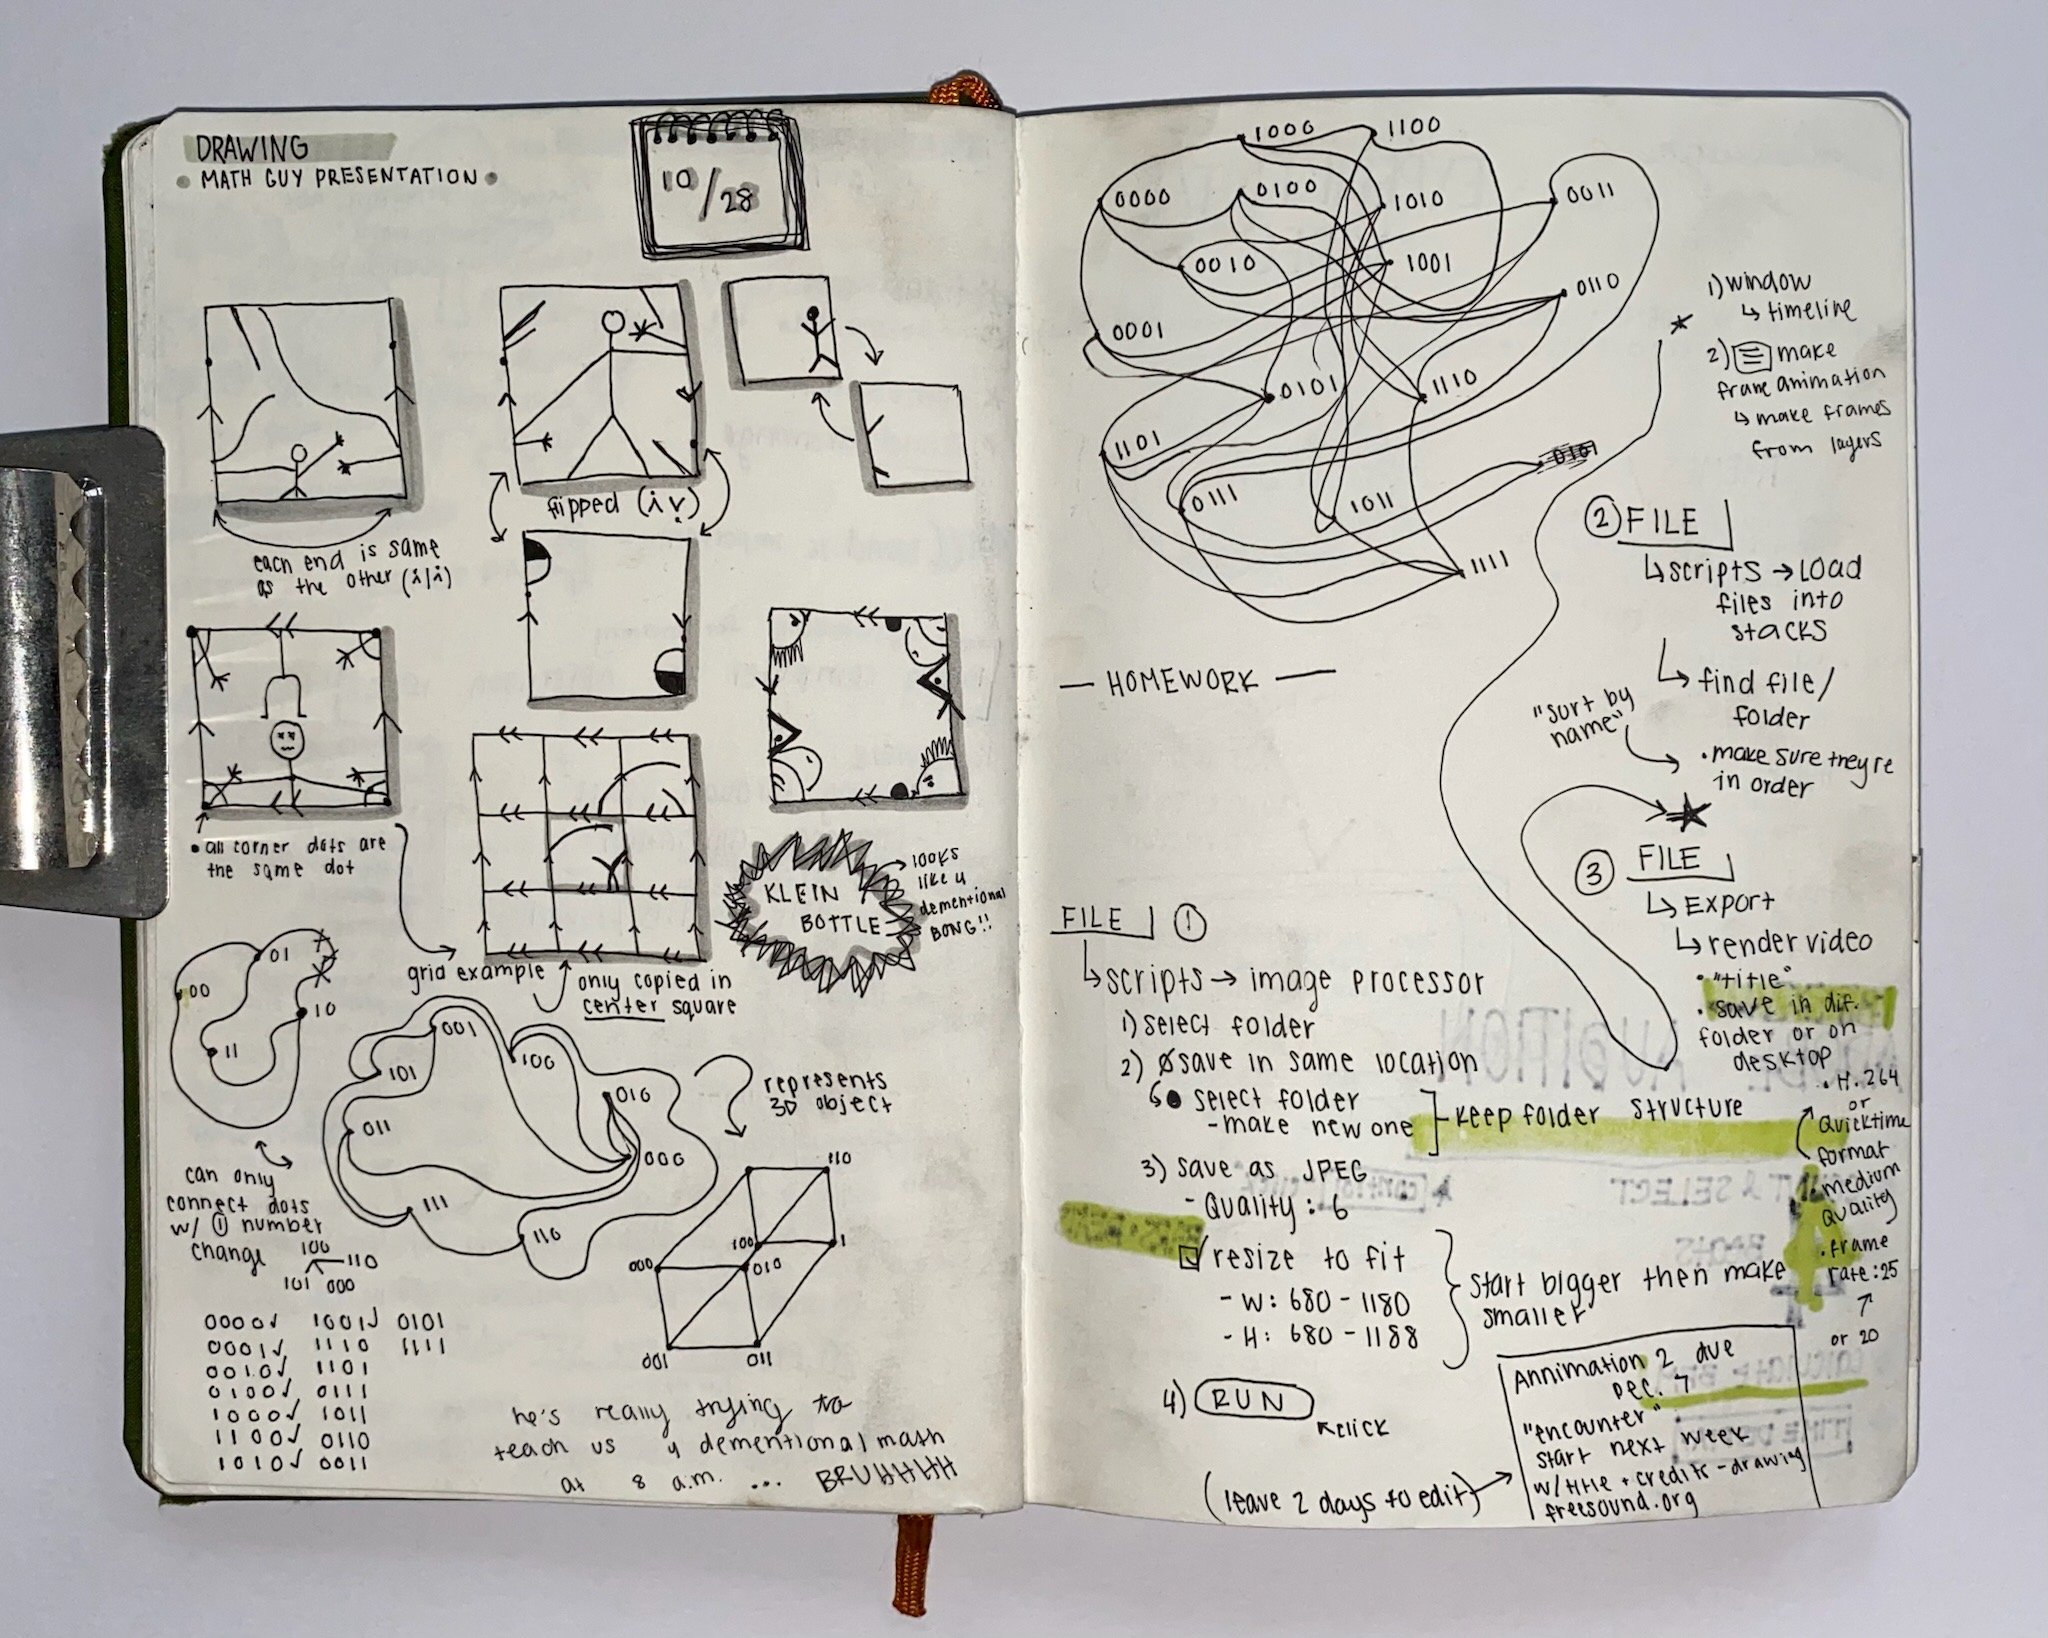 DRAWING
• MATH GUY PRESENTATION •
10/28
each end is same
as the other (i/i)
flipped (i
• all corner dots are
the same dot
grid example
only copied in
center square
KLEIN
BOTTLE
looks
like 4
dementional
BONG!!
00
01
10
11
001
100
101
010
011
000
111
110
represents
3D object
can only
connect dots
w/ ① number
change
100
110
101 000
110
100
1
000
010
001
011
0000✓ 1001✓ 0101
0001✓ 1110 1111
0010✓ 1101
0100✓ 0111
1000✓ 1011
1100✓ 0110
1010✓ 0011
he's really trying to
teach us 4 dementional math
at 8 a.m. ... BRUHHHH
1000
1100
0000
0100
1010
0011
0010
1001
0110
0001
0101
1110
1101
0111
1011
1111
— HOMEWORK —
FILE ①
↳scripts → image processor
1) select folder
2) save in same location
• select folder
- make new one
keep folder structure
3) save as JPEG
- Quality : 6
resize to fit
- W: 680 - 1180
- H: 680 - 1188
start bigger then make
smaller
4) RUN
click
(leave 2 days to edit)→
Annimation 2 due
Dec. 7
"encounter"
start next week
w/title + credits - drawing
freesound.org
1) window
↳ timeline
2) make
frame animation
↳ make frames
from layers
② FILE
↳scripts → LOAD
files into
stacks
↳ find file/
folder
"sort by
name"
• make sure theyre
in order
③ FILE
↳ Export
↳ render video
• "title"
• save in dif.
folder or on
desktop
• H.264
or
Quicktime
format
• medium
quality
• frame
rate: 25
or 20